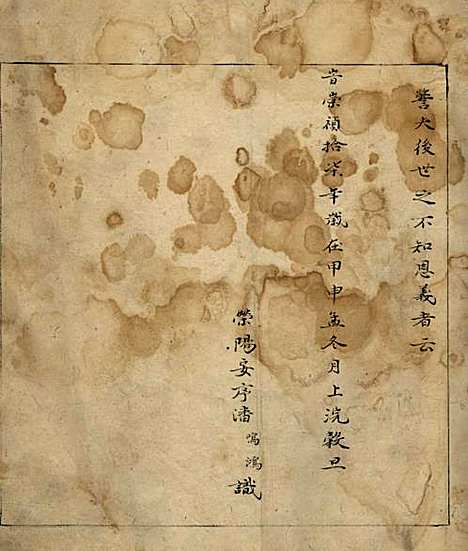 警大後世之不知恩義者云
旹崇禎拾柒年歲在甲申孟冬月上浣穀旦
滎陽安序潘鳴鴻識